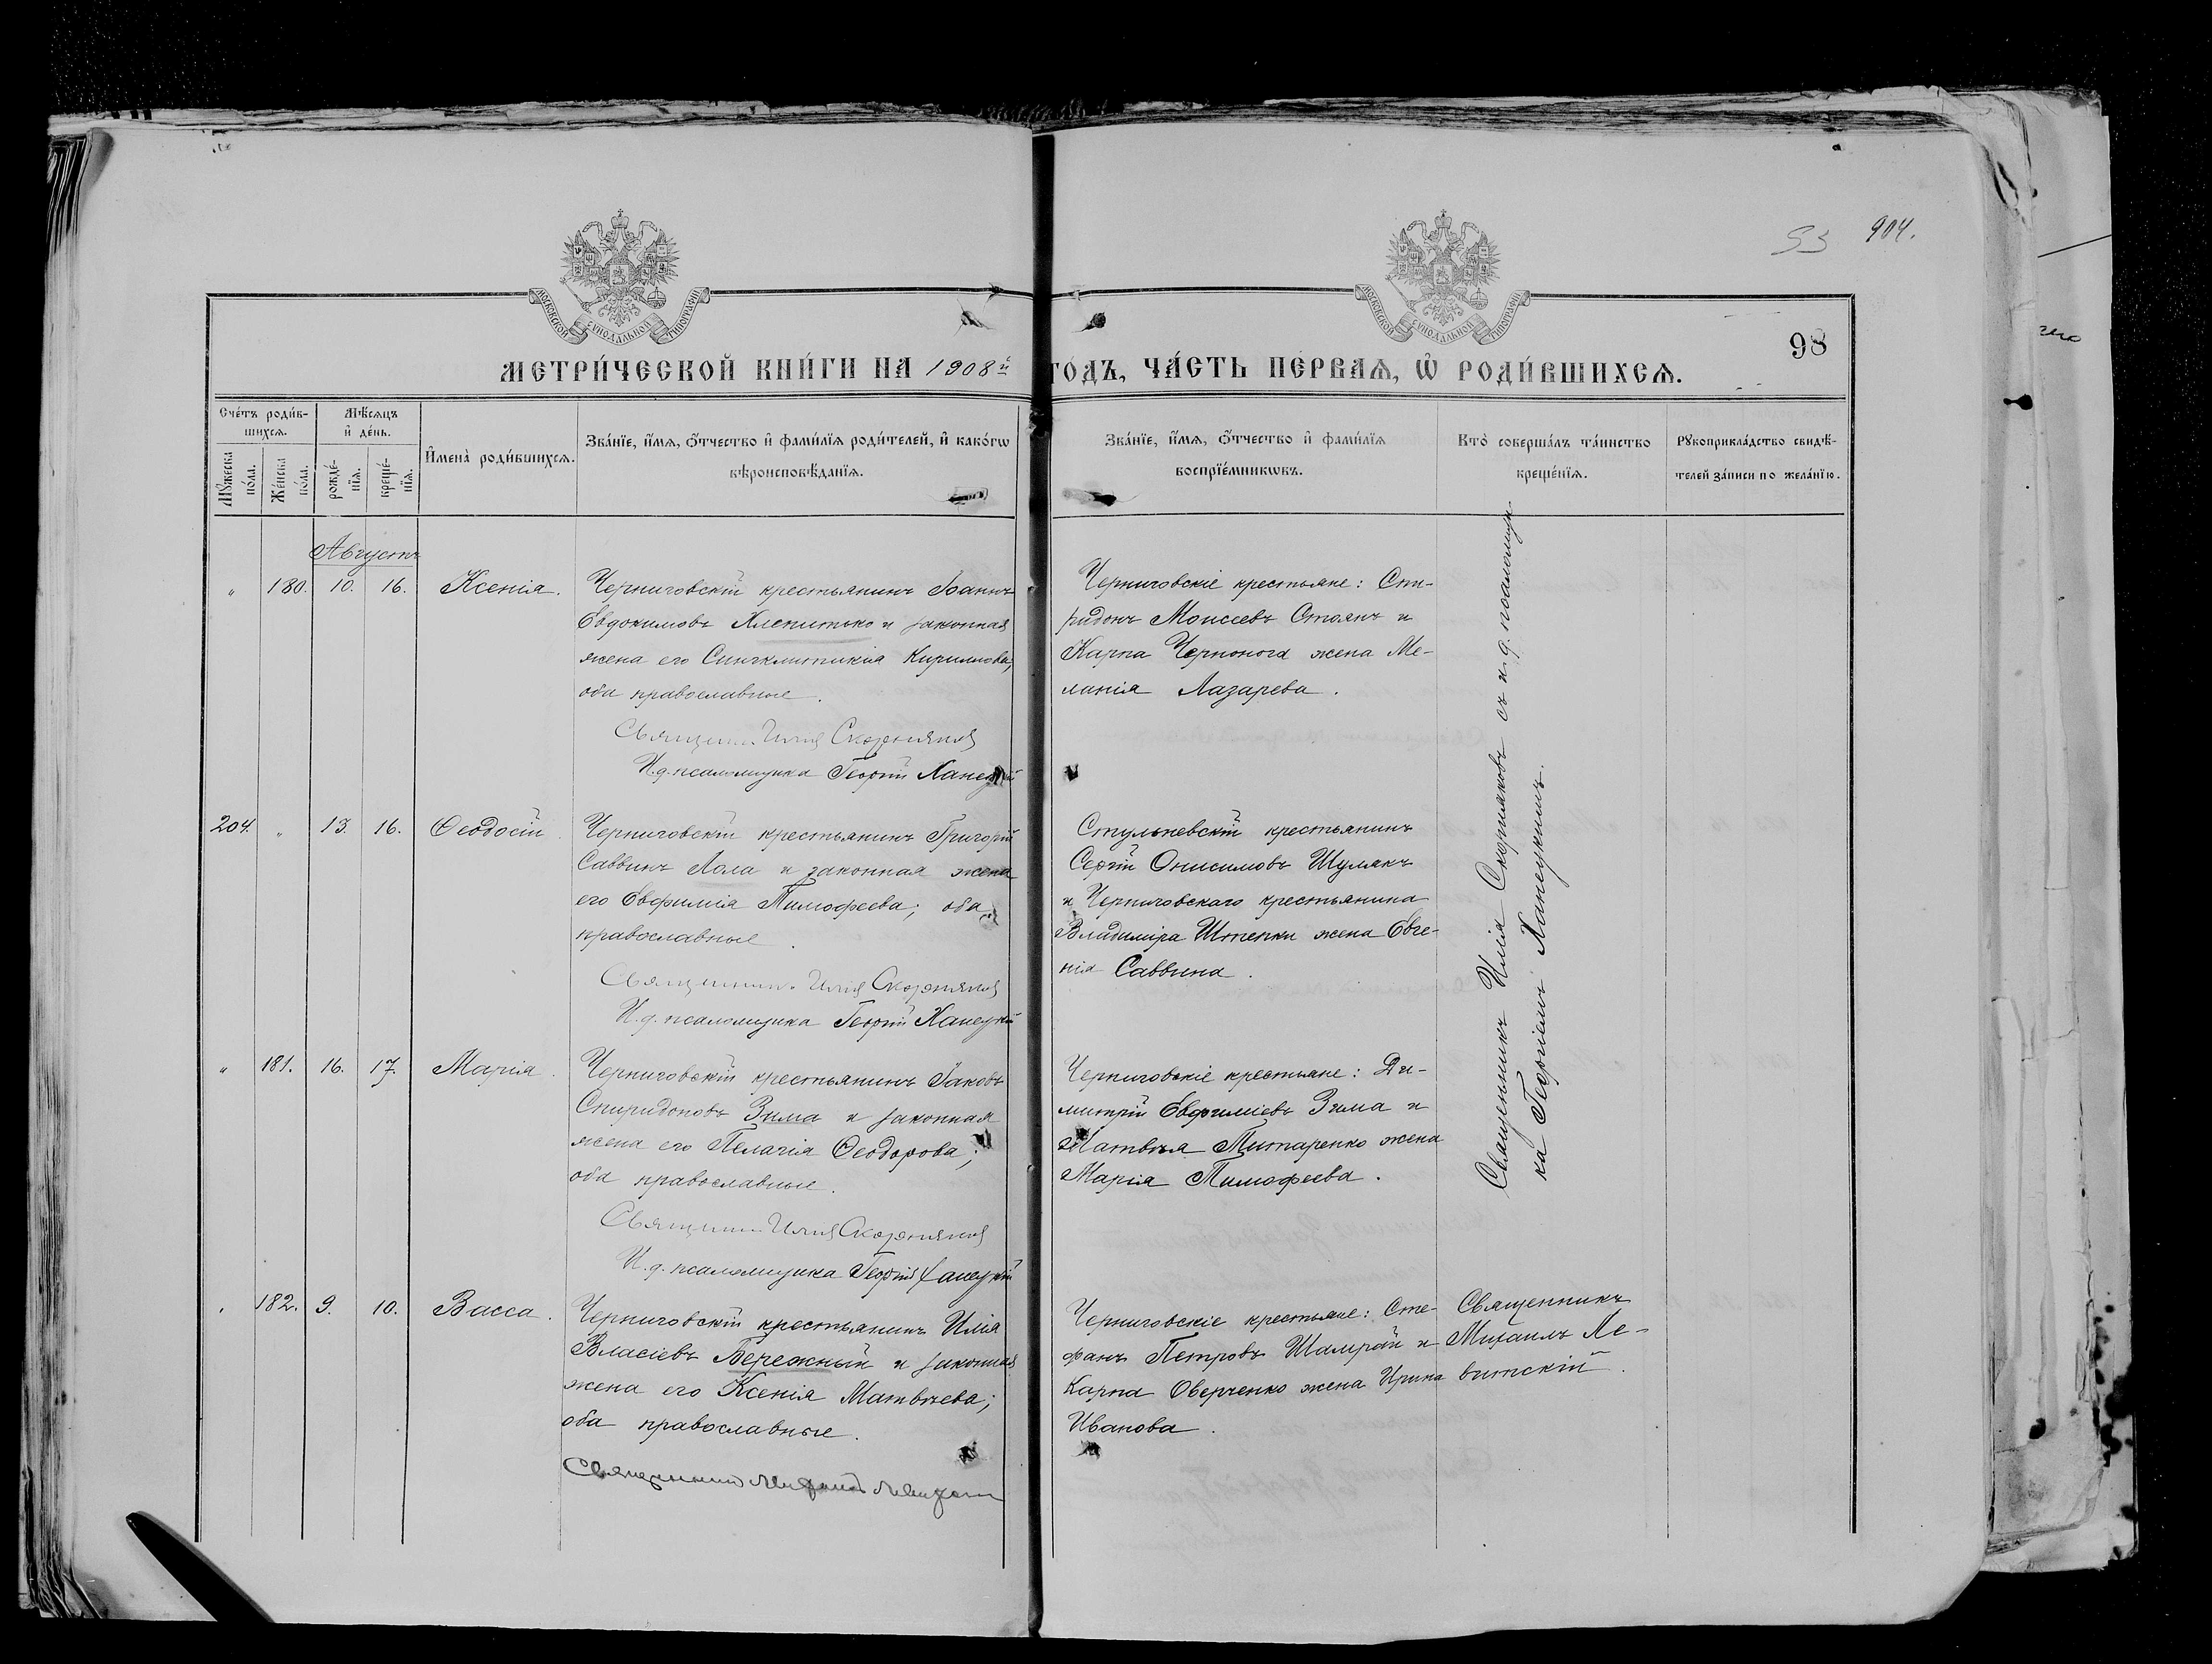 53 904.
98
МОСКОВСКОЙ СѴНОДАЛЬНОЙ ТИПОГРАФІИ
МОСКОВСКОЙ СѴНОДАЛЬНОЙ ТИПОГРАФІИ
МЕТРИ́ЧЕСКОЙ КНИ́ГИ НА 1908й ГОДЪ, ЧА́СТЬ ПЕ́РВАѦ, Ѡ҆ РОДИ́ВШИХСѦ.
Сче́тъ роди́в-
шихсѧ.
Мꙋ́жеска по́ла.
Же́нска по́ла.
Мѣ́сѧцъ
и҆ де́нь.
рожде́-
нїѧ.
креще́-
нїѧ.
И҆мена̀ роди́вшихсѧ.
Зва́нїе, и҆́мѧ, ѻ҆́тчество и҆ фами́лїѧ роди́телей, и҆ како́гѡ
вѣроисповѣ́данїѧ.
Зва́нїе, и҆́мѧ, ѻ҆́тчество и҆ фами́лїѧ
воспрїе́мникѡвъ.
Кто̀ соверша́лъ та́инство
креще́нїѧ.
Рꙋкоприкла́дство свидѣ́-
телей за́писи по жела́нїю.
Августъ
" 180. 10. 16. Ксенія.
Черниговскій крестьянинъ Іоаннъ
Евдокимовъ Хлепитько и законная
жена его Синклитикія Кириллова,
оба православные.
Священникъ Илия Скорняковъ
И.д. псаломщика Георгій Ханецкій
Черниговскіе крестьяне: Спи-
ридонъ Моисеевъ Стоянъ и
Карпа Чернонога жена Ме-
ланія Лазарева.
204. " 13. 16. Ѳеодосій
Черниговскій крестьянинъ Григорій
Саввинъ Лола и законная жена
его Евфимія Тимофеева; оба
православные.
Священникъ Илия Скорняковъ
И.д. псаломщика Георгій Ханецкій
Стульневскій крестьянинъ
Сергій Онисимовъ Шулякъ
и Черниговскаго крестьянина
Владиміра Штепки жена Евге-
нія Саввина.
" 181. 16. 17. Марія.
Черниговскій крестьянинъ Іаковъ
Спиридоновъ Зима и законная
жена его Пелагія Ѳеодорова;
оба православные.
Священникъ Илия Скорняковъ
И.д. псаломщика Георгій Ханецкій
Черниговскіе крестьяне: Ди-
митрій Евфиміевъ Зима и
Матвѣя Титаренко жена
Марія Тимофеева.
Священникъ Илія Скорняковъ съ и.д. псаломщи-
ка Георгіемъ Ханецкимъ.
" 182. 9. 10. Васса.
Черниговскій крестьянинъ Илія
Власіевъ Бережный и законная
жена его Ксенія Матвѣева;
оба православные.
Священникъ Михаилъ
Черниговскіе крестьяне: Сте-
фанъ Петровъ Шамрай и
Карпа Оверченко жена Ирина
Иванова.
Священникъ
Михаилъ Ле-
витскій.